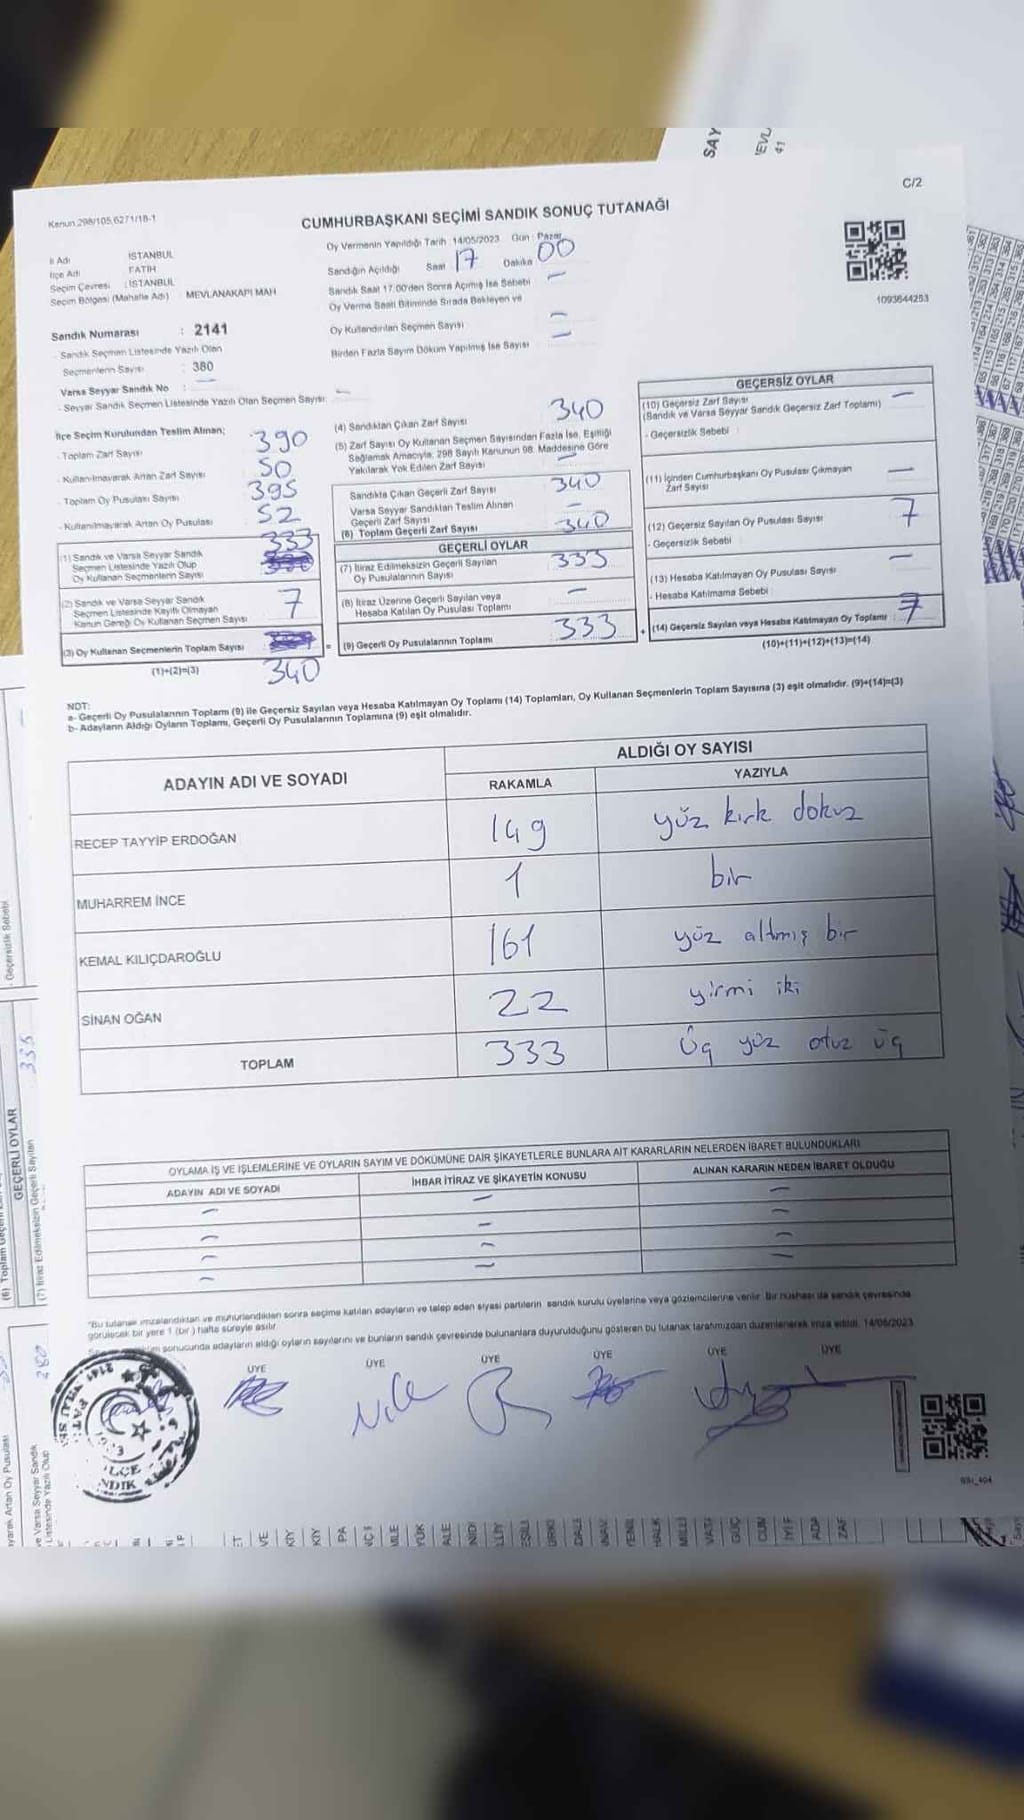 SAY
C/2
Kanun 298/105,6271/18-1
CUMHURBAŞKANI SEÇİMİ SANDIK SONUÇ TUTANAĞI
Oy Vermenin Yapıldığı Tarih 14/05/2023 Gün : Pazar
İl Adı İSTANBUL
İlçe Adı FATİH
Seçim Çevresi : İSTANBUL
Seçim Bölgesi (Mahalle Adı) MEVLANAKAPI MAH
Sandığın Açıldığı Saat 17 Dakika 00
Sandık Saat 17.00'den Sonra Açılmış İse Sebebi —
Oy Verme Saati Bitiminde Sırada Bekleyen ve
Oy Kullandırılan Seçmen Sayısı —
Birden Fazla Sayım Döküm Yapılmış İse Sayısı —
1093644253
Sandık Numarası : 2141
- Sandık Seçmen Listesinde Yazılı Olan
Seçmenlerin Sayısı : 380
Varsa Seyyar Sandık No : —
- Seyyar Sandık Seçmen Listesinde Yazılı Olan Seçmen Sayısı: —
İlçe Seçim Kurulundan Teslim Alınan;
- Toplam Zarf Sayısı 390
- Kullanılmayarak Artan Zarf Sayısı 50
- Toplam Oy Pusulası Sayısı 395
- Kullanılmayarak Artan Oy Pusulası 52
(1) Sandık ve Varsa Seyyar Sandık
Seçmen Listesinde Yazılı Olup
Oy Kullanan Seçmenlerin Sayısı 333
(2) Sandık ve Varsa Seyyar Sandık
Seçmen Listesinde Kayıtlı Olmayan
Kanun Gereği Oy Kullanan Seçmen Sayısı 7
(3) Oy Kullanan Seçmenlerin Toplam Sayısı
(1)+(2)=(3) 340
(4) Sandıktan Çıkan Zarf Sayısı 340
(5) Zarf Sayısı Oy Kullanan Seçmen Sayısından Fazla İse, Eşitliği
Sağlamak Amacıyla; 298 Sayılı Kanunun 98. Maddesine Göre
Yakılarak Yok Edilen Zarf Sayısı —
Sandıkta Çıkan Geçerli Zarf Sayısı 340
Varsa Seyyar Sandıktan Teslim Alınan
Geçerli Zarf Sayısı —
(6) Toplam Geçerli Zarf Sayısı 340
GEÇERLİ OYLAR
(7) İtiraz Edilmeksizin Geçerli Sayılan
Oy Pusulalarının Sayısı 333
(8) İtiraz Üzerine Geçerli Sayılan veya
Hesaba Katılan Oy Pusulası Toplamı —
= (9) Geçerli Oy Pusulalarının Toplamı 333
GEÇERSİZ OYLAR
(10) Geçersiz Zarf Sayısı —
(Sandık ve Varsa Seyyar Sandık Geçersiz Zarf Toplamı)
- Geçersizlik Sebebi :
(11) İçinden Cumhurbaşkanı Oy Pusulası Çıkmayan
Zarf Sayısı —
(12) Geçersiz Sayılan Oy Pusulası Sayısı 7
- Geçersizlik Sebebi
(13) Hesaba Katılmayan Oy Pusulası Sayısı —
- Hesaba Katılmama Sebebi
+ (14) Geçersiz Sayılan veya Hesaba Katılmayan Oy Toplamı : 7
(10)+(11)+(12)+(13)=(14)
NOT:
a- Geçerli Oy Pusulalarının Toplamı (9) ile Geçersiz Sayılan veya Hesaba Katılmayan Oy Toplamı (14) Toplamları, Oy Kullanan Seçmenlerin Toplam Sayısına (3) eşit olmalıdır. (9)+(14)=(3)
b- Adayların Aldığı Oyların Toplamı, Geçerli Oy Pusulalarının Toplamına (9) eşit olmalıdır.
ADAYIN ADI VE SOYADI ALDIĞI OY SAYISI
RAKAMLA YAZIYLA
RECEP TAYYİP ERDOĞAN 149 yüz kırk dokuz
MUHARREM İNCE 1 bir
KEMAL KILIÇDAROĞLU 161 yüz altmış bir
SİNAN OĞAN 22 yirmi iki
TOPLAM 333 Üç yüz otuz üç
OYLAMA İŞ VE İŞLEMLERİNE VE OYLARIN SAYIM VE DÖKÜMÜNE DAİR ŞİKAYETLERLE BUNLARA AİT KARARLARIN NELERDEN İBARET BULUNDUKLARI
ADAYIN ADI VE SOYADI İHBAR İTİRAZ VE ŞİKAYETİN KONUSU ALINAN KARARIN NEDEN İBARET OLDUĞU
— — —
— — —
— — —
— — —
"Bu tutanak imzalandıktan ve mühürlendikten sonra seçime katılan adayların ve talep eden siyasi partilerin sandık kurulu üyelerine veya gözlemcilerine verilir. Bir nüshası da sandık çevresinde
görülecek bir yere 1 (bir) hafta süreyle asılır.
sonucunda adayların aldığı oyların sayılarını ve bunların sandık çevresinde bulunanlara duyurulduğunu gösteren bu tutanak tarafımızdan düzenlenerek imza edildi. 14/05/2023
ÜYE ÜYE ÜYE ÜYE ÜYE ÜYE
2141
İLÇE
Geçersizlik Sebebi
GEÇERLİ OYLAR
(7) İtiraz Edilmeksizin Geçerli Sayılan